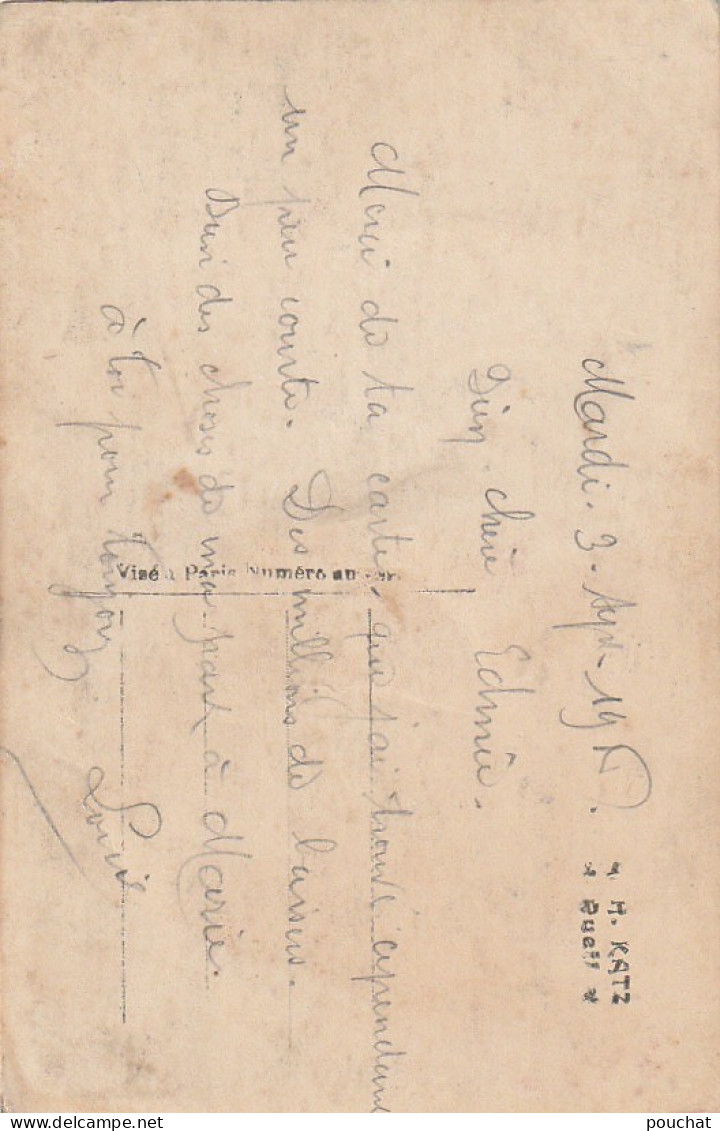 Mardi. 3. Sept. 19
Bien chère Edmée.
Merci de ta carte, que j'ai trouvé cependant
un peu courte. Des millions de baisers.
Bien des choses de ma part à Marie.
à toi pour toujours.
Louise
H. KATZ
Rueil
Visé à Paris Numéro au
pouchat